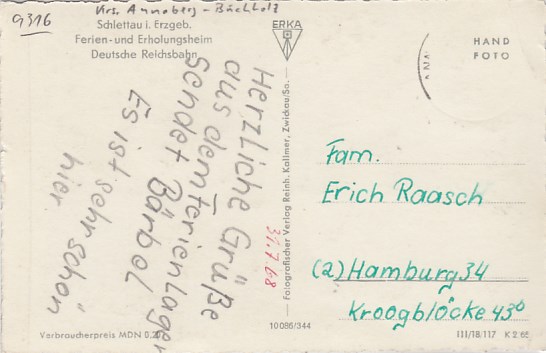 9316 Krs. Annaberg-Buchholz
Schlettau i. Erzgeb.
Ferien- und Erholungsheim
Deutsche Reichsbahn
Herzliche Grüße
aus dem Ferienlager
sendet Bärbel
Es ist sehr schön
hier
Verbraucherpreis MDN 0.20
ERKA
Fotografischer Verlag Reinh. Kallmer, Zwickau/Sa.
10086/344
31.7.68
HAND
FOTO
Fam.
Erich Raasch
(2) Hamburg 34
Kroogblöcke 43b
III/18/117 K 2 65